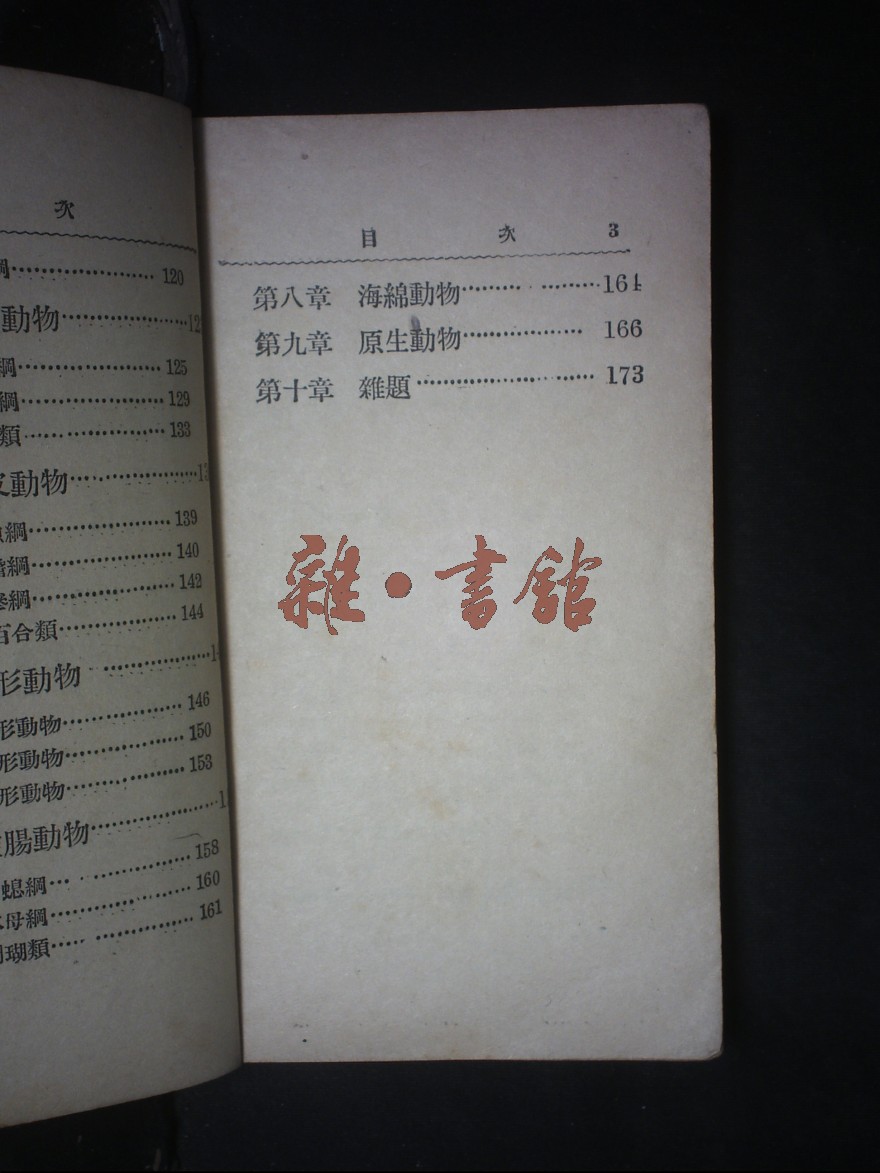 次
綱…………………120
動物……………12
綱………………125
綱………………129
類………………133
皮動物……………13
綱………………139
綱………………140
綱………………142
百合類……………144
形動物……………1
形動物……………146
形動物……………150
形動物……………153
腸動物……………1
螅綱………………158
水母綱……………160
瑚類………………161
目 次 3
第八章 海綿動物………………164
第九章 原生動物……………… 166
第十章 雜題……………………173
雜·書館